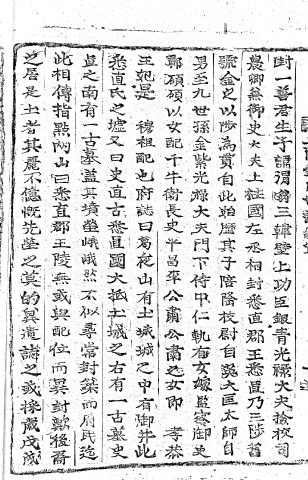 封一善君生子諝渭翻三韓壁上功臣銀青光祿大夫檢校司
農卿兼御史大夫上柱國左丞相封悉直郡王悉直乃三陟舊
號金之以陟為貫自此始歷其子陪隆校尉自溪大匡太師自
男至九世孫金紫光祿大夫門下侍中仁軌有女嫁監察御史
鄭碩碩以女配千牛衛長史平昌李公肅公肅之女即 孝恭
王妃是 穆祖配也府誌曰葛夜山有土城城之中有御井此
悉直氏之墟又曰史直古悉直國大抵土城之右有一古墓史
直之南有一古墓盖其墳塋峨峨然不似尋常封築而府民迄
此相傳指點兩山曰悉直郡王陵無或與配位而異封歟後裔
之居是土者其麗不億慨先塋之莫的與遺之或採歲戊戌